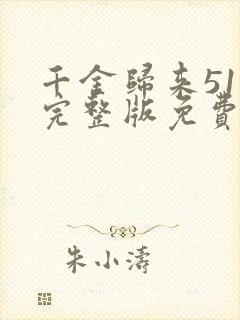 千金歸来51
完整版免費
朱小濤